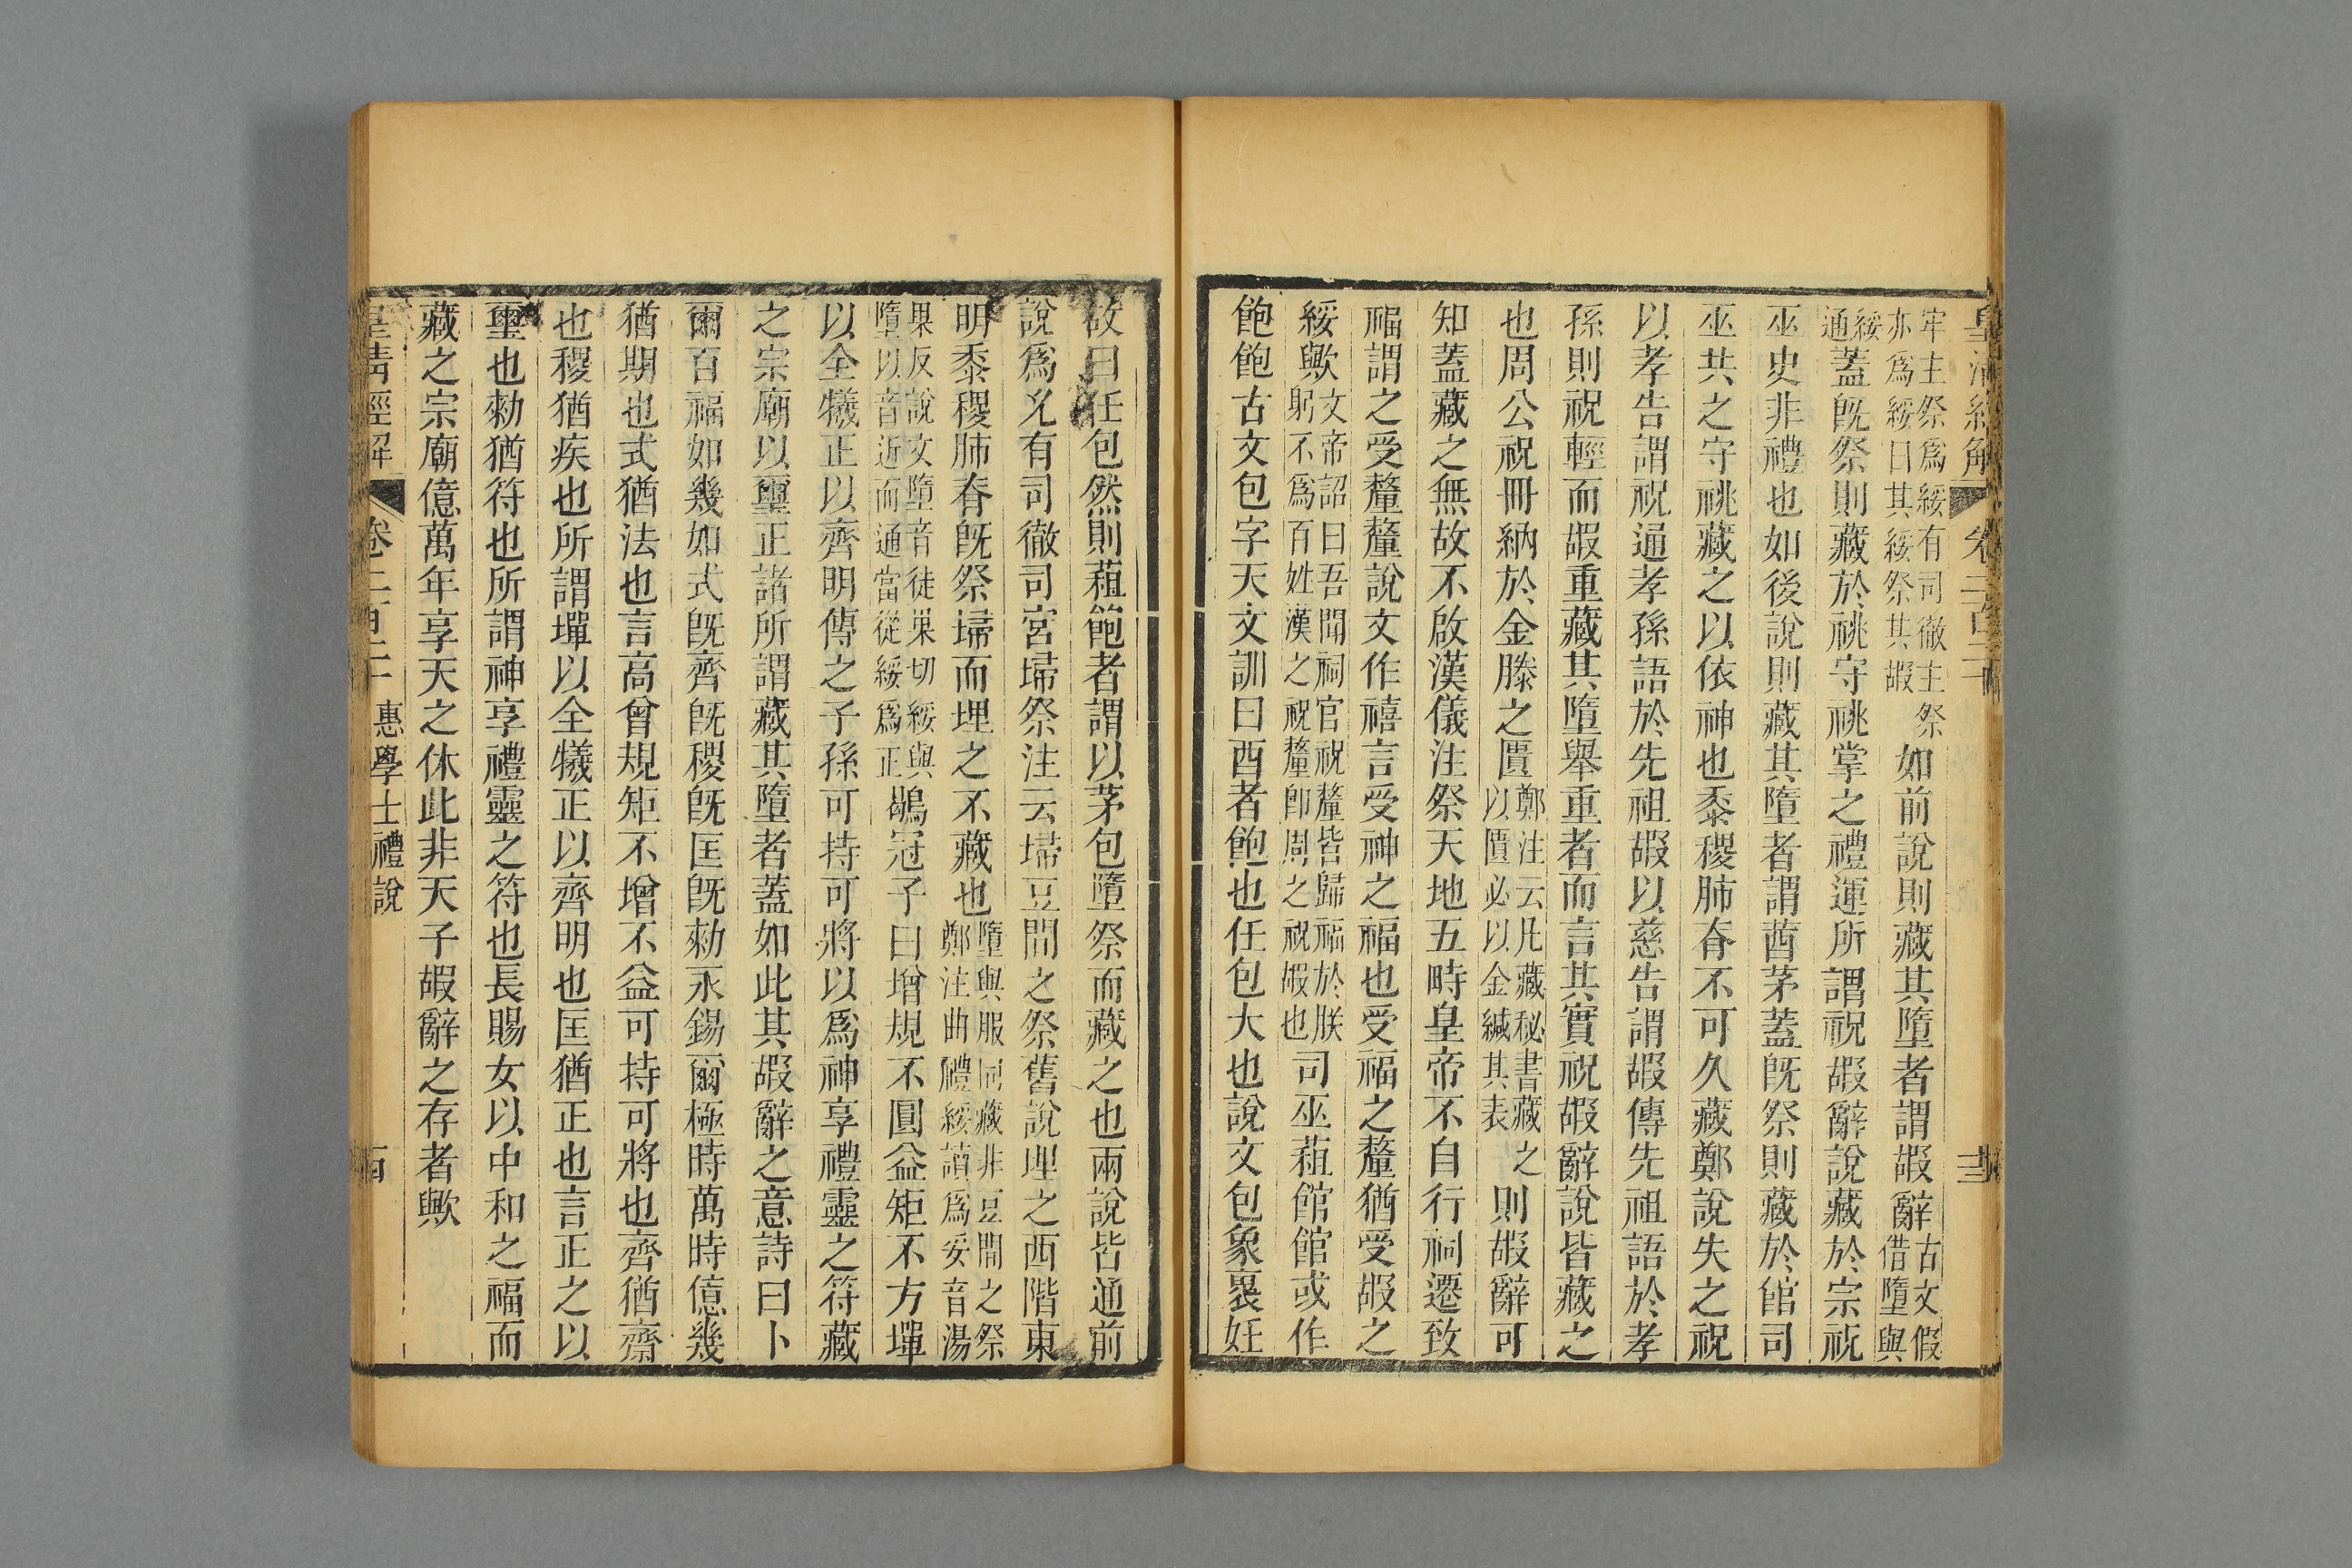 皇清經解 卷二百二十 十三
牢主祭爲綏有司徹主祭亦爲綏曰其綏祭其嘏如前說則藏其墮者謂嘏辭古文假借墮與
綏通蓋旣祭則藏於祧守祧掌之禮運所謂祝嘏辭說藏於宗祝
巫史非禮也如後說則藏其墮者謂菩茅蓋旣祭則藏於館司
巫共之守祧藏之以依神也黍稷肺脊不可久藏鄭說失之祝
以孝告謂祝通孝孫語於先祖嘏以慈告謂嘏傳先祖語於孝
孫則祝輕而嘏重藏其墮舉重者而言其實祝嘏辭說皆藏之
也周公祝冊納於金縢之匱鄭注云凡藏秘書藏之以匱必以金緘其表則嘏辭可
知蓋藏之無故不啟漢儀注祭天地五畤皇帝不自行祠還致
福謂之受釐釐說文作禧言受神之福也受福之釐猶受嘏之
綏歟文帝詔曰吾聞祠官祝釐皆歸福於朕躬不爲百姓漢之祝釐卽周之祝嘏也司巫蒩館館或作
飽飽古文包字天文訓曰酉者飽也任包大也說文包象裹妊
故曰任包然則蒩飽者謂以茅包墮祭而藏之也兩說皆通前
說爲允有司徹司宮埽祭注云埽豆閒之祭舊說埋之西階東
明黍稷肺脊旣祭埽而埋之不藏也墮與服同藏非豆閒之祭鄭注曲禮綏讀爲妥音湯
果反說文墮音徒果切綏與墮以音近而通當從綏爲正鶡冠子曰增規不圓益矩不方墠
以全犧正以齊明傳之子孫可持可將以爲神享禮靈之符藏
之宗廟以璽正諸所謂藏其墮者蓋如此其嘏辭之意詩曰卜
爾百福如幾如式旣齊旣稷旣匡旣勑永錫爾極時萬時億幾
猶期也式猶法也言高曾規矩不增不益可持可將也齊猶齋
也稷猶疾也所謂墠以全犧正以齊明也匡猶正也言正之以
璽也勑猶符也所謂神享禮靈之符也長賜女以中和之福而
藏之宗廟億萬年享天之休此非天子嘏辭之存者歟
皇清經解 卷二百二十 惠學士禮說 十四